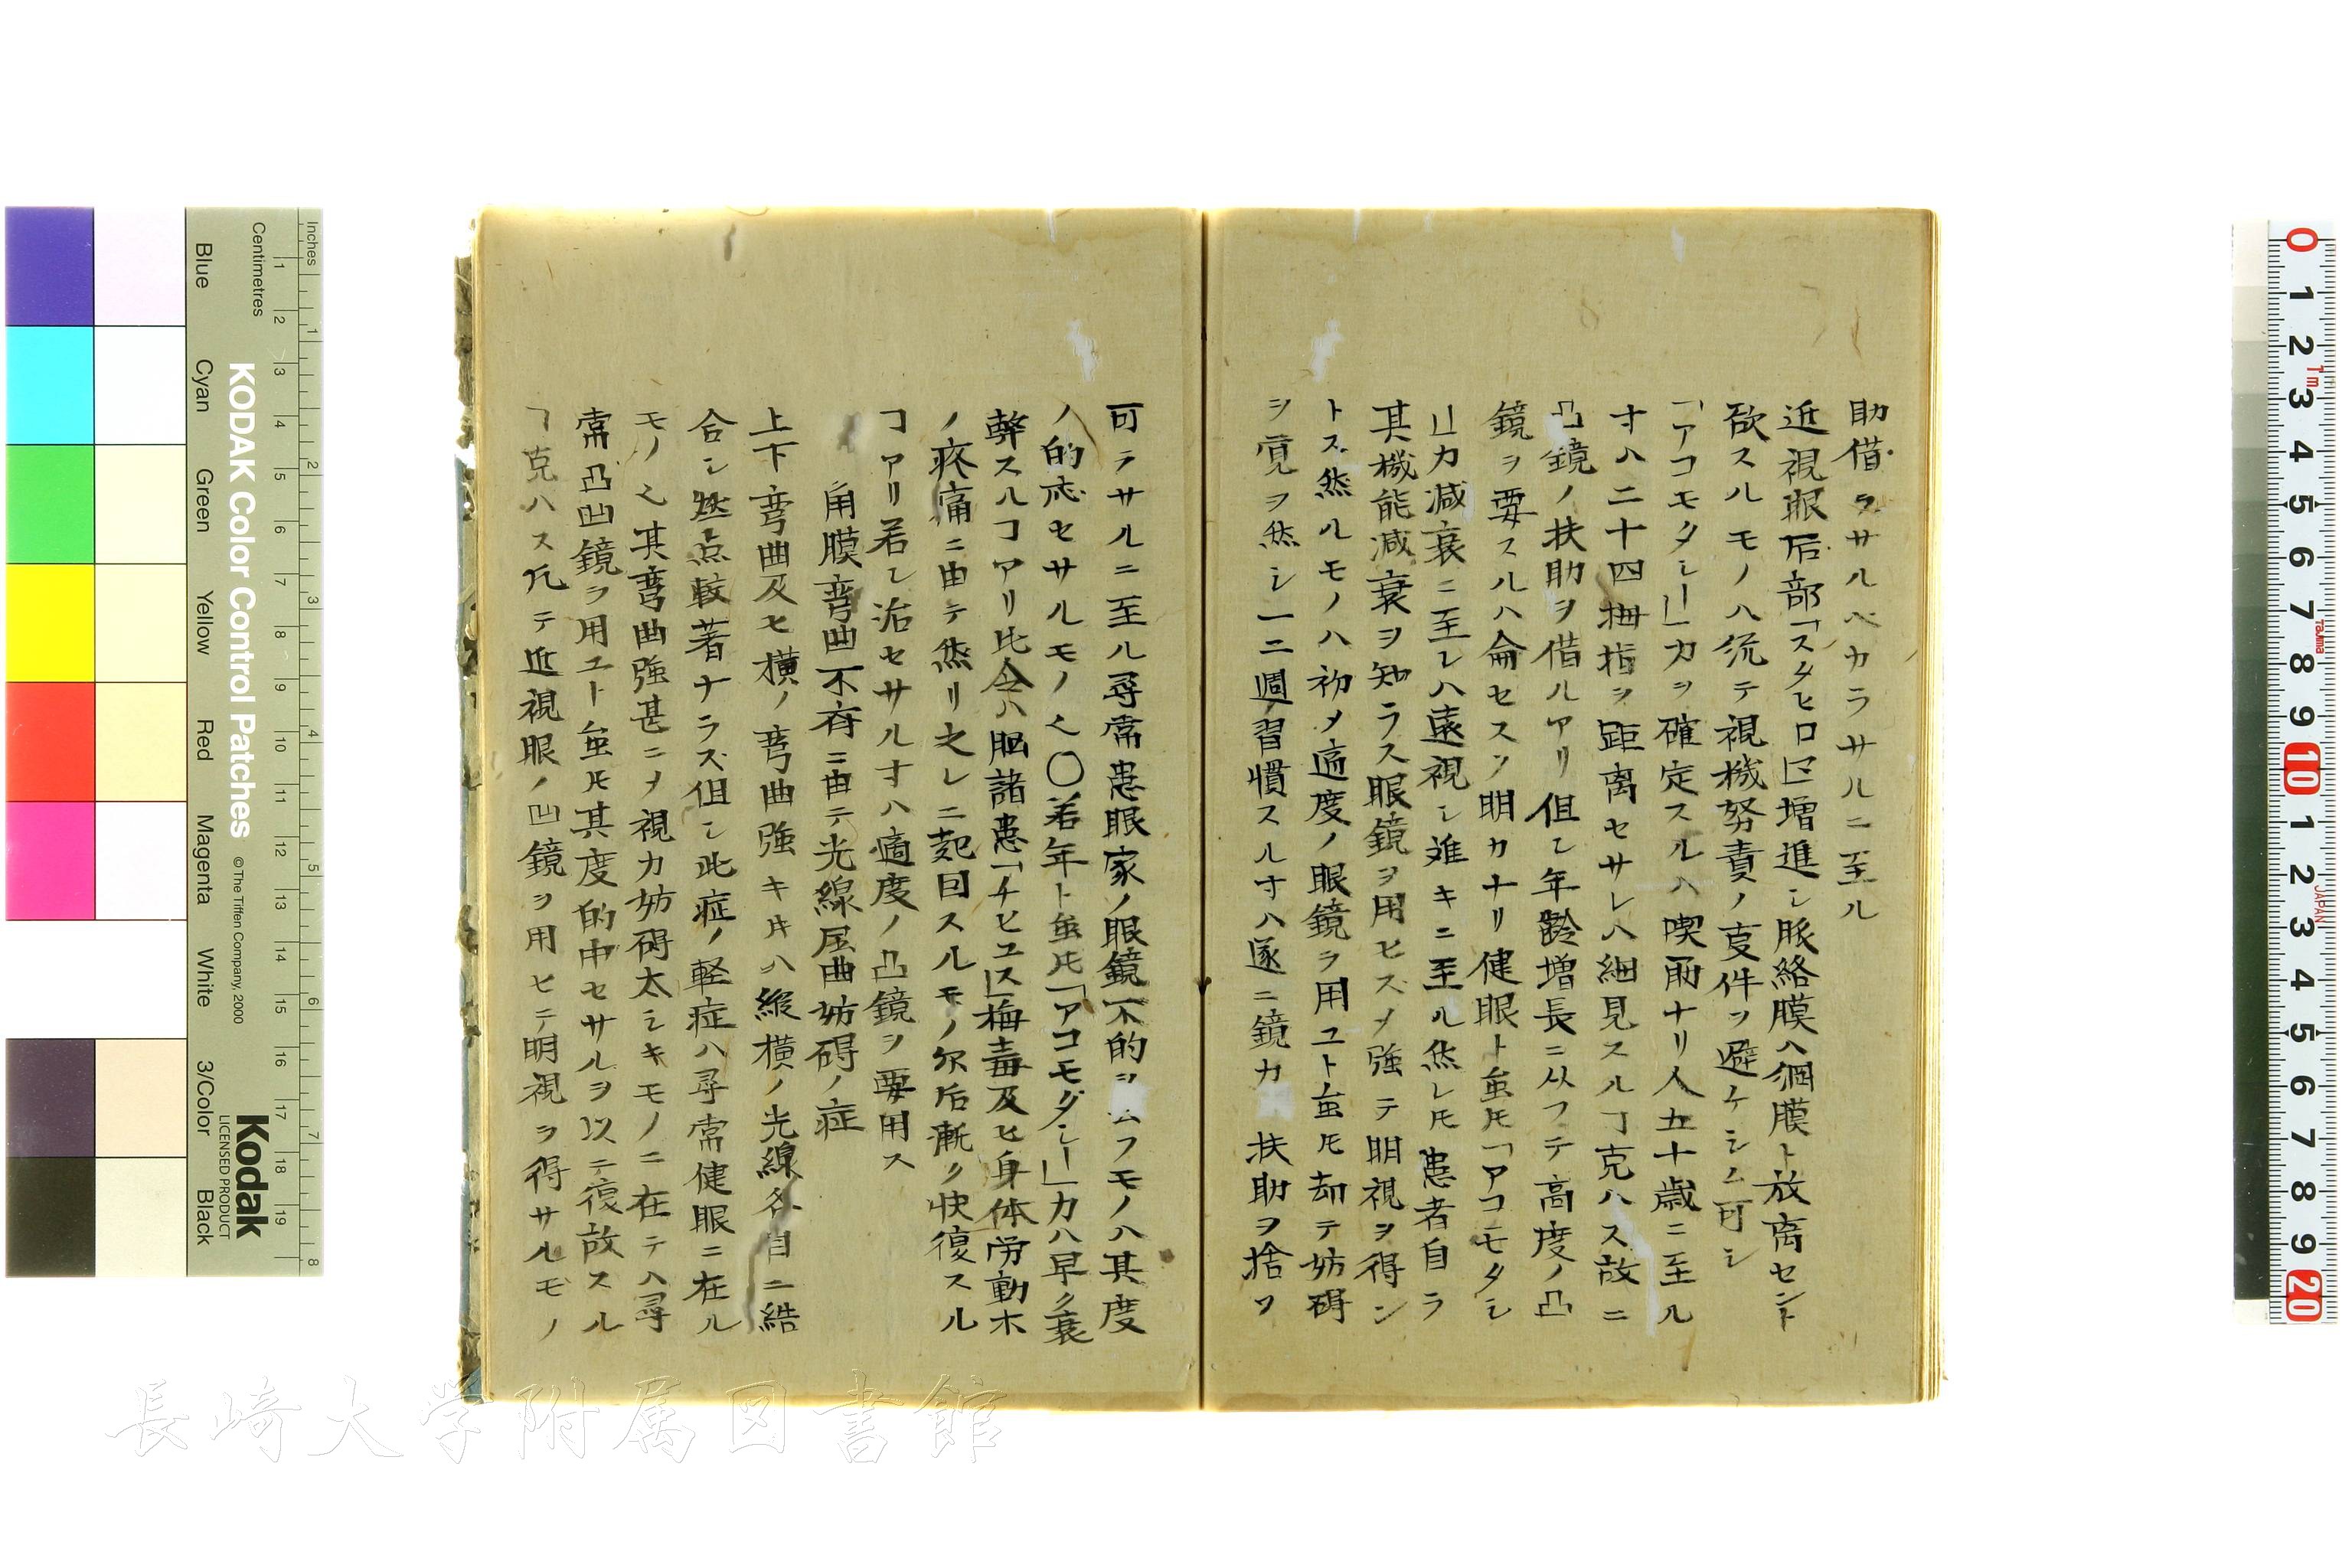 助借ラサルベカラサルニ至ル
近視眼后部「スタヒロ」増進シ脈絡膜ハ網膜ト放离セント
欲スルモノハ流テ視機努責ノ叓件ヲ避ケシム可シ
「アコモタシー」力ヲ確定スルハ喫肭ナリ人五十歳ニ至ル
寸ハ二十四拇指ヲ距离セサレハ細見スルヿ克ハス故ニ
凸鏡ノ扶助ヲ借ルアリ但シ年齢増長ニ从フテ高度ノ凸
鏡ヲ要スルハ侖セスソ明カナリ健眼ト虽𪜈「アコモタシ
ー」力減衰ニ至レハ遠視シ难キニ至ル然レ𪜈患者自ラ
其機能減衰ヲ知ラス眼鏡ヲ用ヒズメ強テ明視ヲ得ン
トス然ルモノハ初メ適度ノ眼鏡ヲ用ユト虽𪜈却テ妨碍
ヲ覚ヲ然シ一二週習慣スル寸ハ遂ニ鏡力 扶助ヲ捨ツ
可ラサルニ至ル尋常患眼家ノ眼鏡不的ヲ ムフモノハ其度
ノ的応セサルモノ也〇若年ト虽𪜈「アコモダシー」力ハ早ク衰
弊スルヿアリ比令ハ脳諸患「チヒユス」梅毒及ヒ身体労動ホ
ノ疼痛ニ由テ然リ之レニ起因スルモノ尓后漸ク快復スル
ヿアリ若シ治セサル寸ハ適度ノ凸鏡ヲ要用ス
角膜弯曲不斉ニ由テ光線屈曲妨碍ノ症
上下弯曲及ヒ横ノ弯曲強キ片ハ縦横ノ光線各自ニ結
合シ燃点較著ナラズ但シ此症ノ軽症ハ尋常健眼ニ在ル
モノ也其弯曲強甚ニメ視力妨碍太シキモノニ在テハ尋
常凸凹鏡ヲ用ユト虽𪜈其度的中セサルヲ以テ復故スル
ヿ克ハス凡テ近視眼ノ凹鏡ヲ用ヒテ明視ヲ得サルモノ
KODAK Color Control Patches
©The Tiffen Company, 2000
Kodak
LICENSED PRODUCT
Inches
Centimetres
Blue
Cyan
Green
Yellow
Red
Magenta
White
3/Color
Black
長崎大学附属図書館